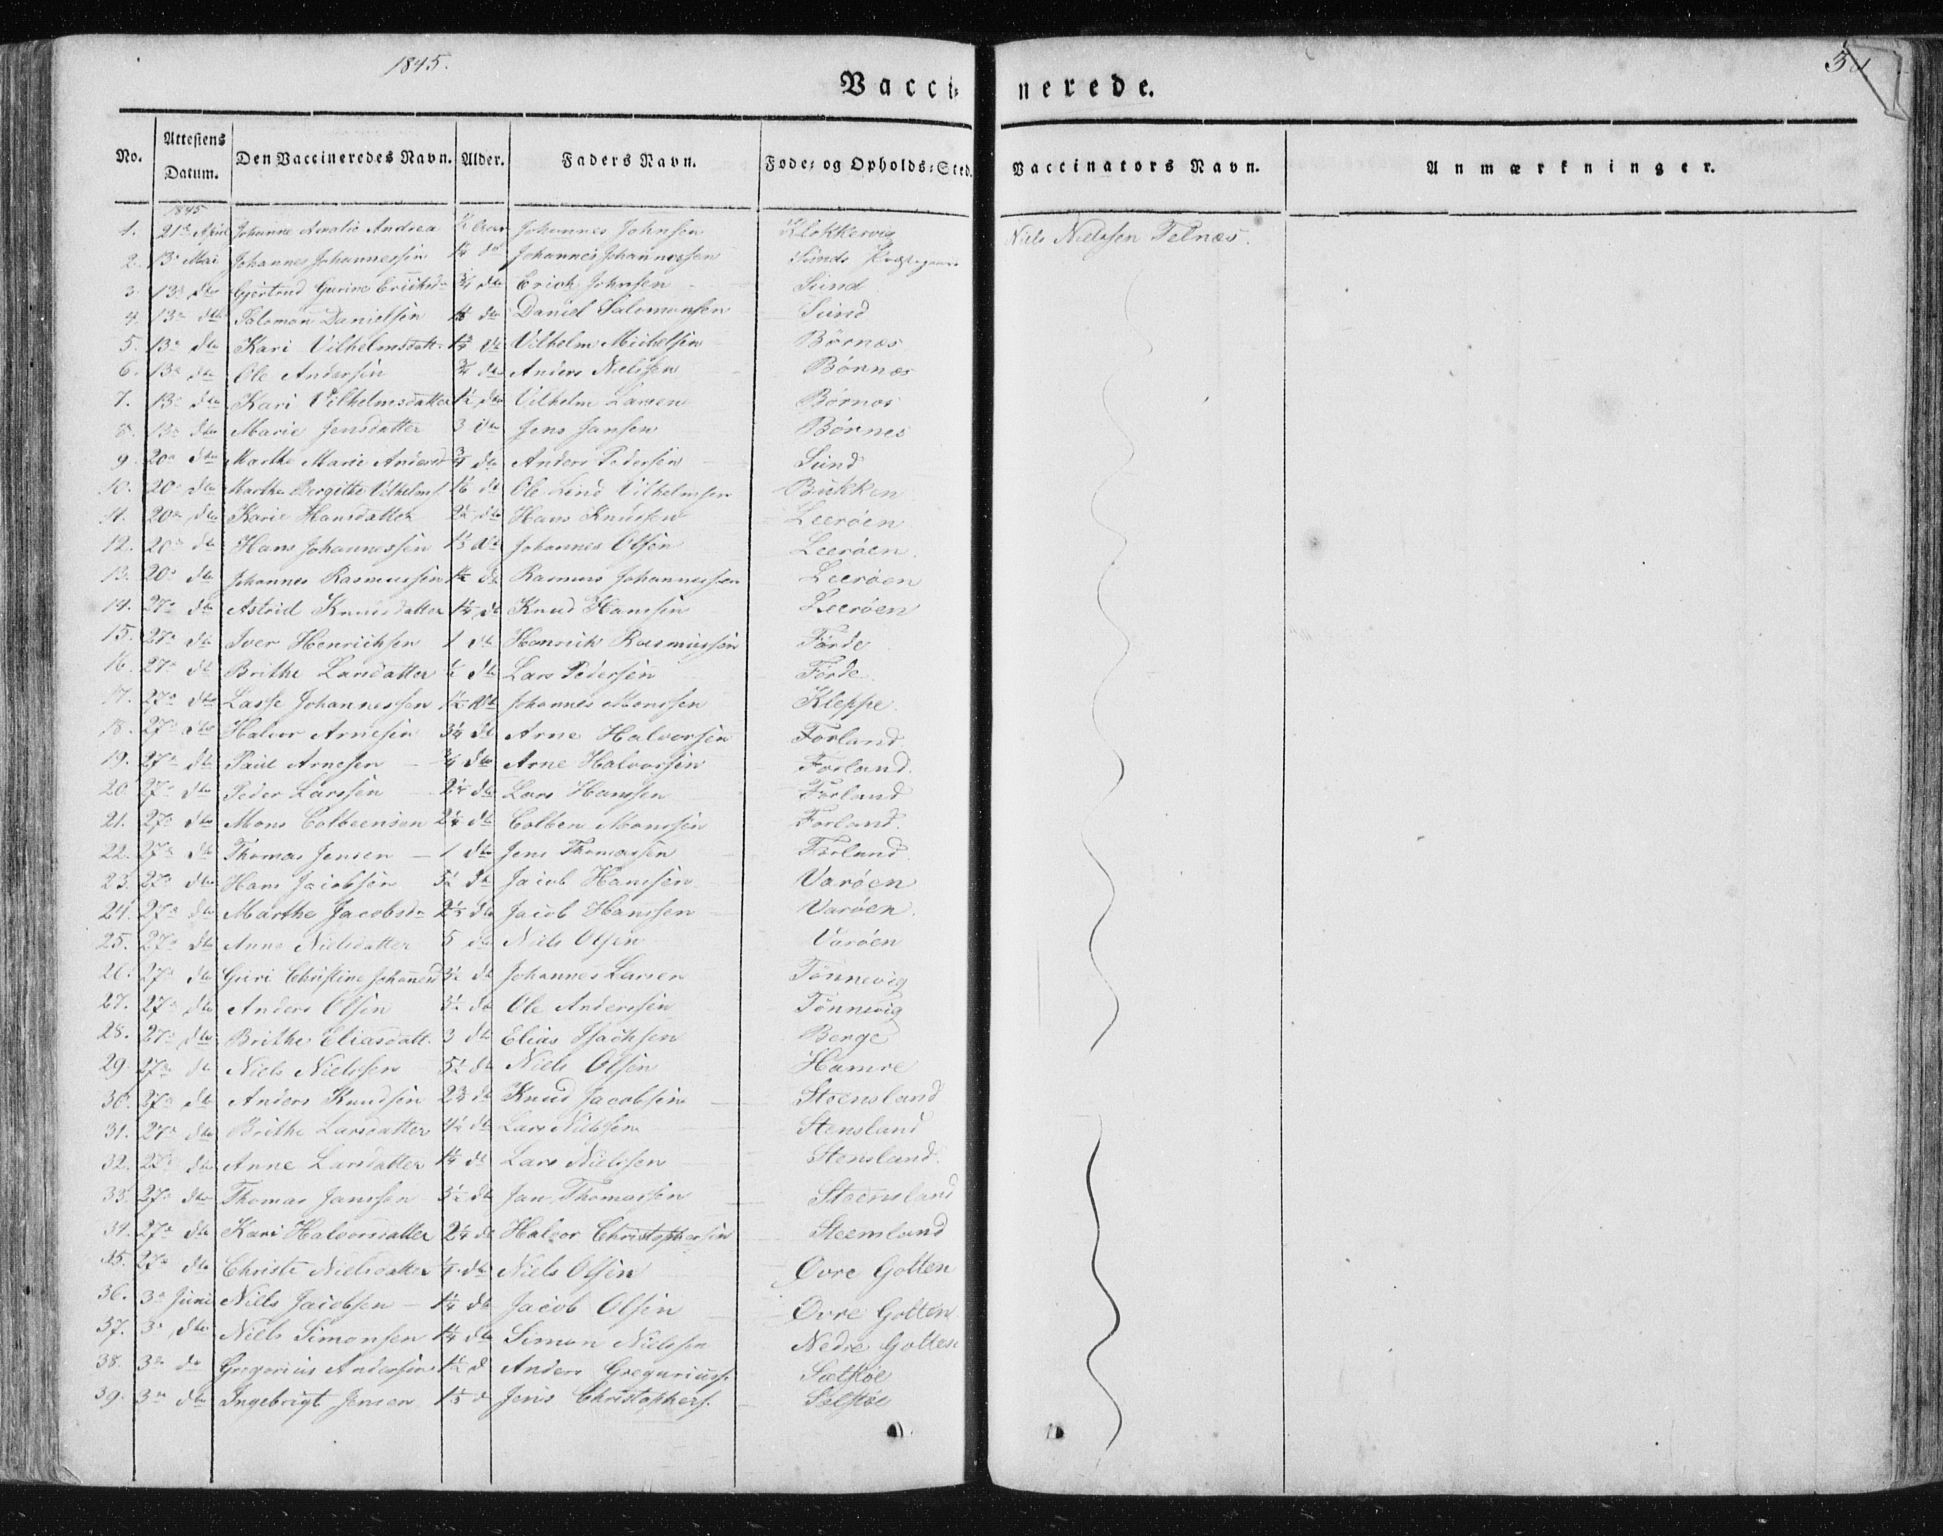 1845.
Vaccinerede.
No. Attestens Datum. Den Vaccineredes Navn. Alder. Faders Navn. Føde- og Opholds-Sted. Vaccinators Navn. Anmærkninger.
1845
1. 21de April Johanne Amalie Andrea Johannes Johnsen Klokkervig Niels Nielssen Telnæs.
2. 13de Mai Johannes Johannessen 1¼ do Johannes Johannessen Sunds
3. 13de dto Gjertrud Gurine ¾ dto Erich Johnsen Sund
4. 13de dto Salomon Danielsen dto Daniel Salomonsen Sund
5. 13de dto Kari Vilhelmsdatt. dto Vilhelm Michelsen Børnæs
6. 13de dto Ole Andersen ¾ dto Anders Nielssen Børnæs
7. 13de dto Kari Vilhelmsdatter 1½ dto Vilhelm Larsen Børnæs
8. 13de dto Marie Jensdatter 3 dto Jens Jansen Børnes
9. 20de dto Marthe Marie Andersd ¾ dto Anders Pedersen Sund
10. 20de dto Marthe Bergithe Vilhelms. dto Ole Lind Vilhelmsen Bukken
11. 20de dto Karie Hansdatter 2½ dto Hans Knussen Leerøen
12. 20de dto Hans Johannessen dto Johannes Olsen Leerøen.
13. 20de dto Johannes Rasmussen 1½ dto Rasmus Johannessen Leerøen
14. 27de dto Astrid Knudsdatter 1¼ dto Knud Hanssen Leerøen
15. 27de dto Iver Henrichsen 1 dto Henrich Rasmussen Førde
16. 27de dto Brithe Larsdatter ½ dto Lars Pedersen Førde.
17. 27de dto Lasse Johannessen 1½ dto Johannes Monssen Kleppe.
18. 27de dto Halvor Arnesen 3¼ dto Arne Halvorsen Forland
19. 27de dto Paul Arnesen ¾ dto Arne Halvorsen Forland.
20. 27de dto Peder Larssen 2¼ dto Lars Hanssen Forland
21. 27de dto Mons Colbeensen 2¼ dto Colben Monssen Forland.
22. 27de dto Thomas Jensen 1 dto Jens Thomassen Forland.
23. 27de dto Hans Jacobsen 5½ dto Jacob Hanssen Varøen
24. 27de dto Marthe Jacobsdr dto Jacob Hanssen Varøen.
25. 27de dto Anne Nielsdatter 5 dto Niels Olsen Varøen
26. 27de dto Guri Christine Johannesd 3½ dto Johannes Larsen Tønnevig
27. 27de dto Anders Olsen 3½ dto Ole Anderssen Tønnevig
28. 27de dto Brithe Eliasdatt. 3 dto Elias Isachsen Berge
29. 27de dto Niels Nielssen 5½ dto Niels Olsen Hamre
30. 27de dto Anders Knudsen dto Knud Jacobsen Steensland
31. 27de dto Brithe Larsdatter 4½ dto Lars Nielssen Stensland
32. 27de dto Anne Larsdatter 1¼ dto Lars Nielssen Stensland.
33. 27de dto Thomas Janssen 3½ dto Jan Thomassen Steensland
34. 27de dto Kari Halvorsdatter 2¼ dto Halvor Christophersen Steensland
35. 27de dto Christi Nielsdatter dto Niels Olsen Øvre Golten
36. 3de Juni Niels Jacobsen 1¼ dto Jacob Olsen Øvre Golten
37. 3de dto Niels Simonsen 1¼ dto Simon Nielssen Nedre Golten
38. 3de do Gregorius Anderssen 1½ d Anders Gregoriuss. Sælstøe
39. 3de dto Ingebrigt Jensen d Jens Christophers. Sælstøe